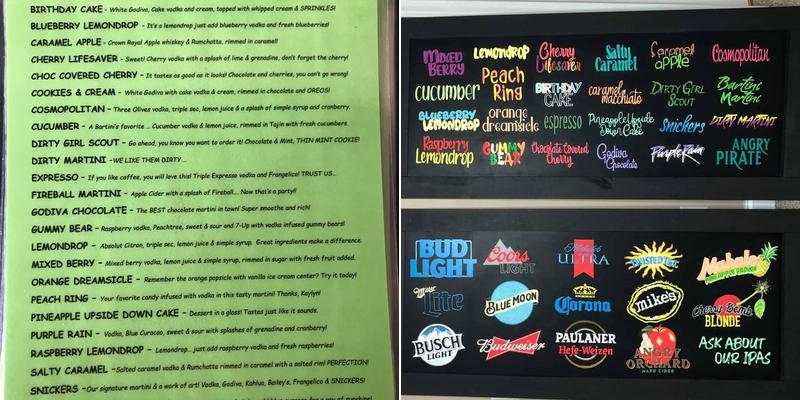 BIRTHDAY CAKE - White Godiva, Cake vodka and cream, topped with whipped cream & SPRINKLES!
BLUEBERRY LEMONDROP - It's a lemondrop just add blueberry vodka and fresh blueberries!
CARAMEL APPLE - Crown Royal Apple whiskey & Rumchatta, rimmed in caramel!
CHERRY LIFESAVER - Sweet! Cherry vodka with a splash of lime & grenadine, don't forget the cherry!
CHOC COVERED CHERRY - It tastes as good as it looks! Chocolate and cherries, you can't go wrong!
COOKIES & CREAM - White Godiva with cake vodka & cream, rimmed in chocolate and OREOS!
COSMOPOLITAN - Three Olives vodka, triple sec, lemon juice & a splash of simple syrup and cranberry.
CUCUMBER - A Bartini's favorite ... Cucumber vodka & lemon juice, rimmed in Tajin with fresh cucumbers.
DIRTY GIRL SCOUT - Go ahead, you know you want to order it! Chocolate & Mint, THIN MINT COOKIE!
DIRTY MARTINI -WE LIKE THEM DIRTY ...
EXPRESSO - If you like coffee, you will love this! Triple Expresso vodka and Frangelica! TRUST US...
FIREBALL MARTINI - Apple Cider with a splash of Fireball.... Now that's a party!!
GODIVA CHOCOLATE - The BEST chocolate martini in town! Super smoothe and rich!
GUMMY BEAR - Raspberry vodka, Peachtree, sweet & sour and 7-Up with vodka infused gummy bears!
LEMONDROP - Absolut Citron, triple sec, lemon juice & simple syrup. Great ingredients make a difference.
MIXED BERRY - Mixed berry vodka, lemon juice & simple syrup, rimmed in sugar with fresh fruit added.
ORANGE DREAMSICLE - Remember the orange popsicle with vanilla ice cream center? Try it today!
PEACH RING - Your favorite candy infused with vodka in this tasty martini! Thanks, Kaylyn!
PINEAPPLE UPSIDE DOWN CAKE - Dessert in a glass! Tastes just like it sounds.
PURPLE RAIN - Vodka, Blue Curacao, sweet & sour with splashes of grenadine and cranberry!
RASPBERRY LEMONDROP - Lemondrop... just add raspberry vodka and fresh raspberries!
SALTY CARAMEL -Salted caramel vodka & Rumchatta rimmed in caramel with a salted rim! PERFECTION!
SNICKERS -Our signature martini & a work of art! Vodka, Godiva, Kahlua, Bailey's, Frangelica & SNICKERS!
MIXED BERRY
LEMONDROP
Cherry Lifesaver
Salty Caramel
Caramel apple
Cosmopolitan
cucumber
Peach Ring
BIRTHDAY CAKE
caramel macchiato
DIRTY GIRL SCOUT
Bartini Martini
BLUEBERRY LEMONDROP
orange dreamsicle
espresso
Pineapple Upside Down Cake
Snickers
DIRTY MARTINI
Raspberry Lemondrop
GUMMY BEAR
Chocolate Covered Cherry
Godiva Chocolate
Purple Rain
ANGRY PIRATE
BUD LIGHT
Coors LIGHT
Michelob ULTRA
TWISTED TEA
Mabalos
Miller Lite
BLUE MOON
Corona
mike's
Cherry Bomb BLONDE
BUSCH LIGHT
Budweiser
PAULANER Hefe-Weizen
ANGRY ORCHARD HARD CIDER
ASK ABOUT OUR IPAS